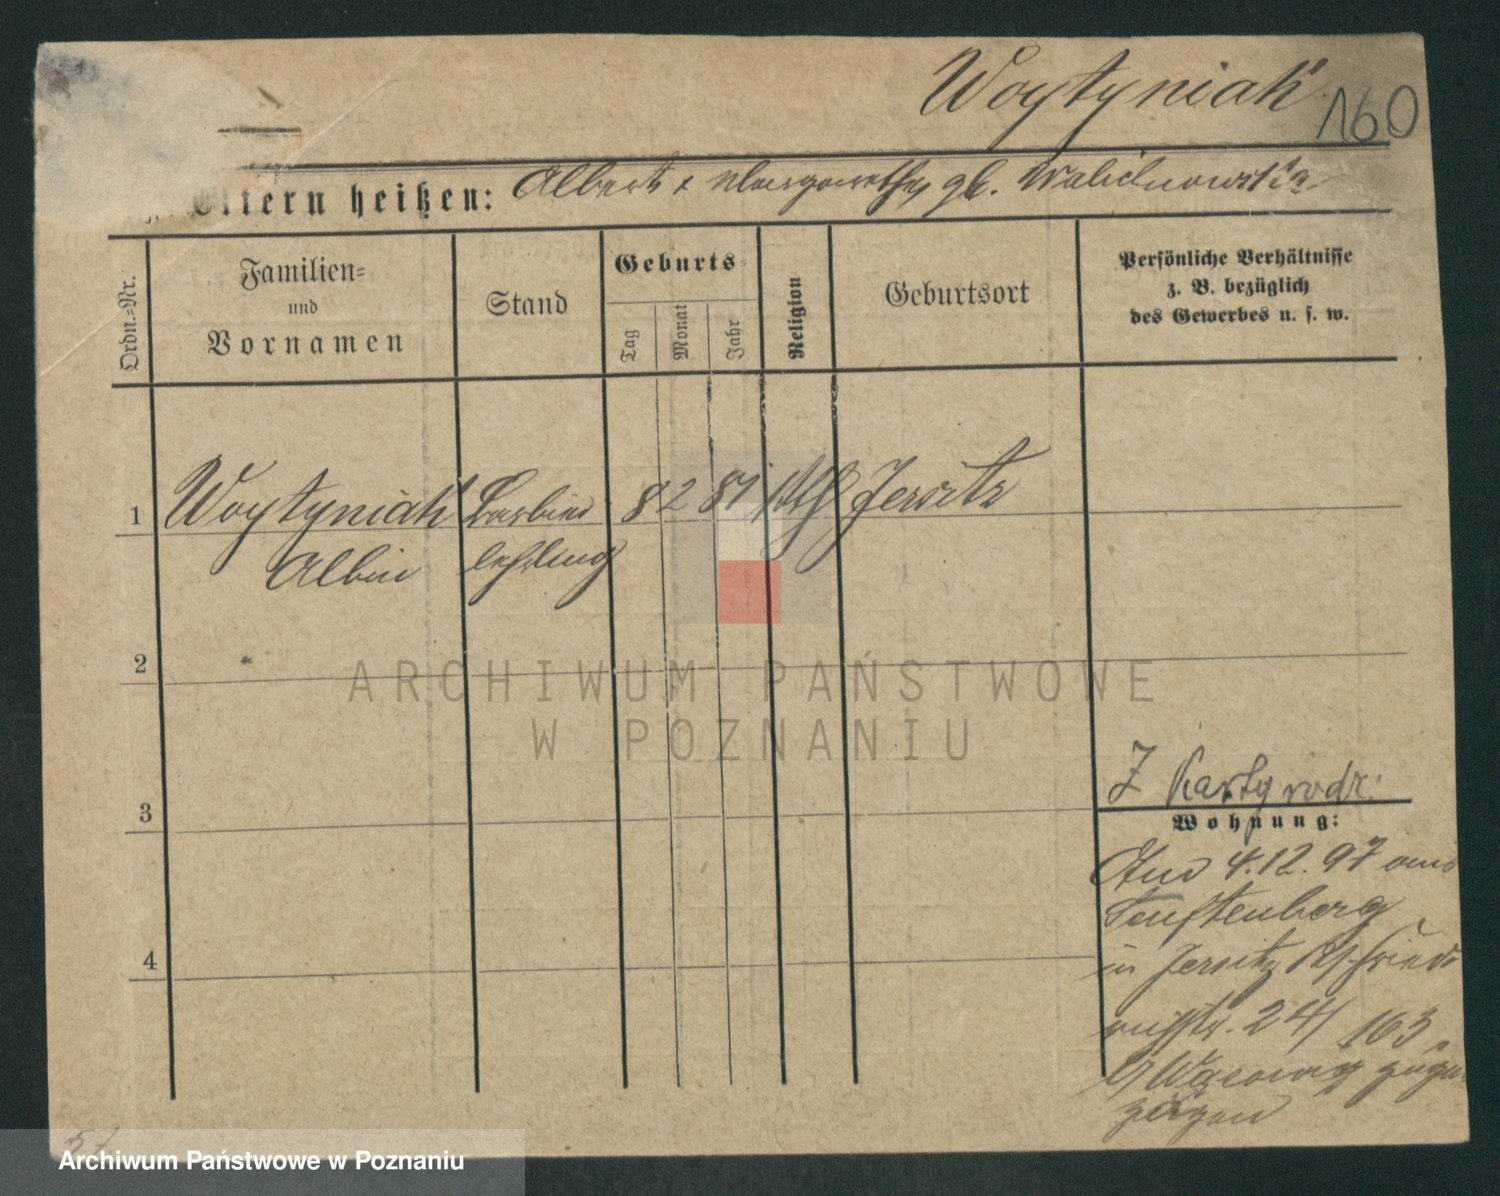 Woytyniak
160
Eltern heißen: Albert & Margarethe, gb. Walichnowska
Ordn.-Nr.
Familien-
und
Vornamen
Stand
Geburts-
Tag
Monat
Jahr
Religion
Geburtsort
Persönliche Verhältnisse
z. B. bezüglich
des Gewerbes u. s. w.
1 Woytyniak Barbier 8 2 81 kth Jersitz
Albin lehrling
2
3
4
Z Karty rodz.
Wohnung:
Am 4.12.97 aus
Senftenberg
in Jersitz
24/163
zuge-
zogen
57
ARCHIWUM PAŃSTWOWE
W POZNANIU
Archiwum Państwowe w Poznaniu